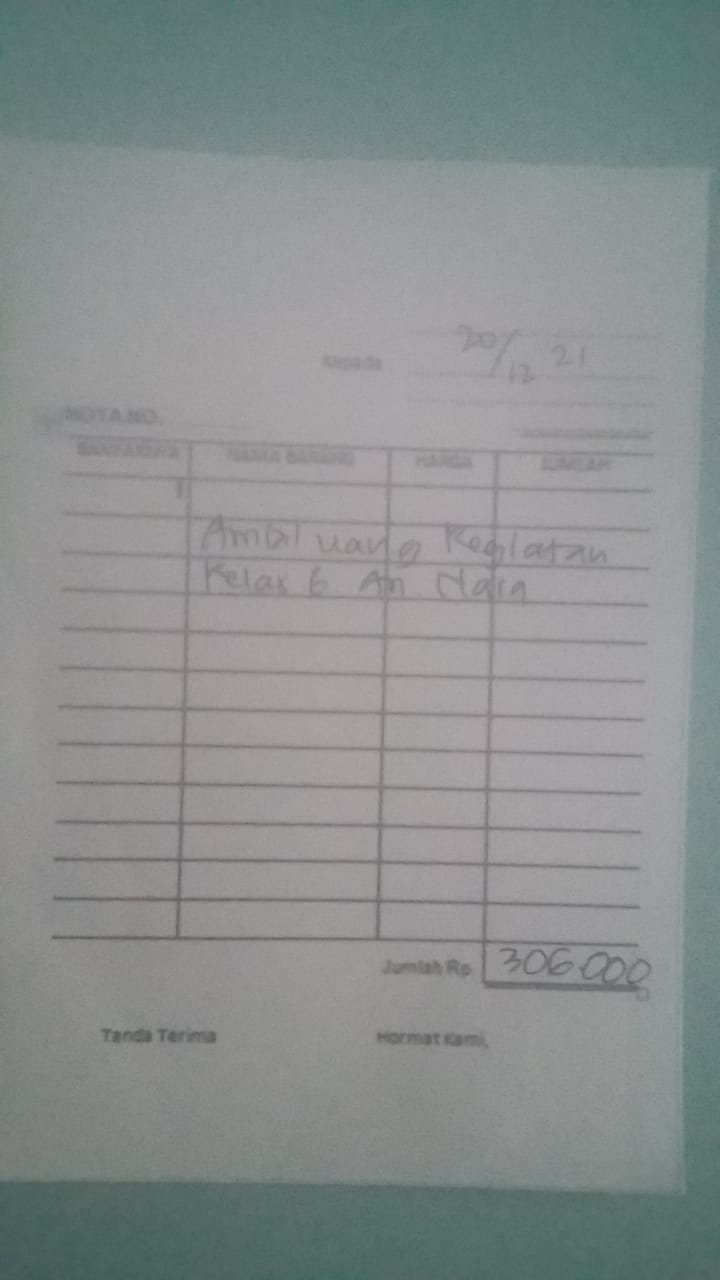 20/12 21
Kepada
NOTA NO.
BANYAKNYA NAMA BARANG HARGA JUMLAH
Ambil uang Kegiatan
Kelas 6 An.
Jumlah Rp 306.000
Tanda Terima Hormat Kami,